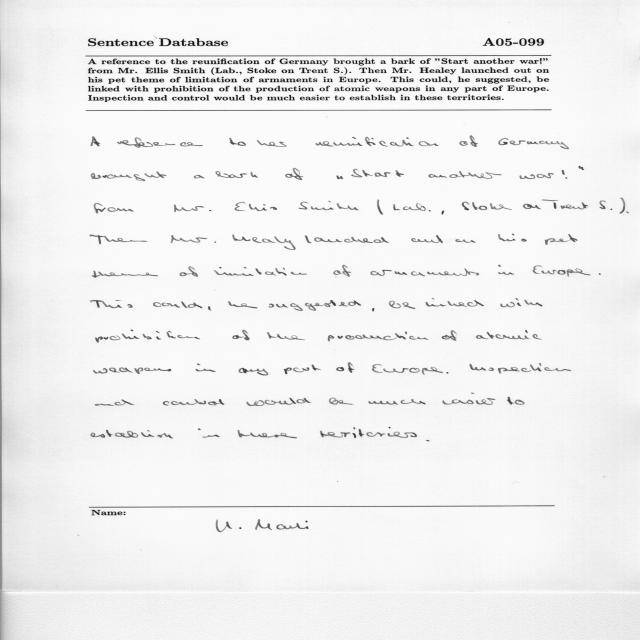 Sentence Database A05-099
A reference to the reunification of Germany brought a bark of "Start another war!"
from Mr. Ellis Smith (Lab., Stoke on Trent S.). Then Mr. Healey launched out on
his pet theme of limitation of armaments in Europe. This could, he suggested, be
linked with prohibition of the production of atomic weapons in any part of Europe.
Inspection and control would be much easier to establish in these territories.
A reference to hes reunification of Germany
brought a bark of "Start another war!"
from Mr. Ellis Smith (Lab., Stoke on Trent S.).
Then Mr. Healy lauched out on his pet
theme of limitation of armaments in Europe.
This could, he suggested, be linked with
prohibition of the production of atomic
weapons in any part of Europe. Inspection
and control would be much easier to
establish in these territories.
Name:
U.